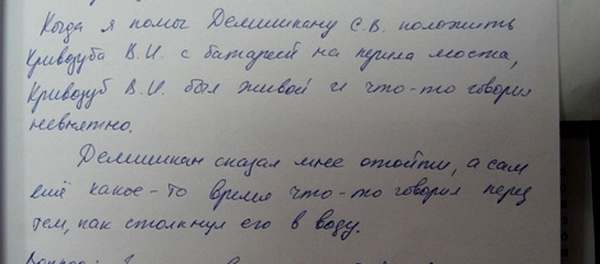 Когда я помог Демишкану С.В. положить
Кривозуба В.И. с батареей на перила моста,
Кривозуб В.И. был живой и что-то говорил
невнятно.
Демишкан сказал мне отойти, а сам
ещё какое-то время что-то говорил перед
тем, как столкнул его в воду.